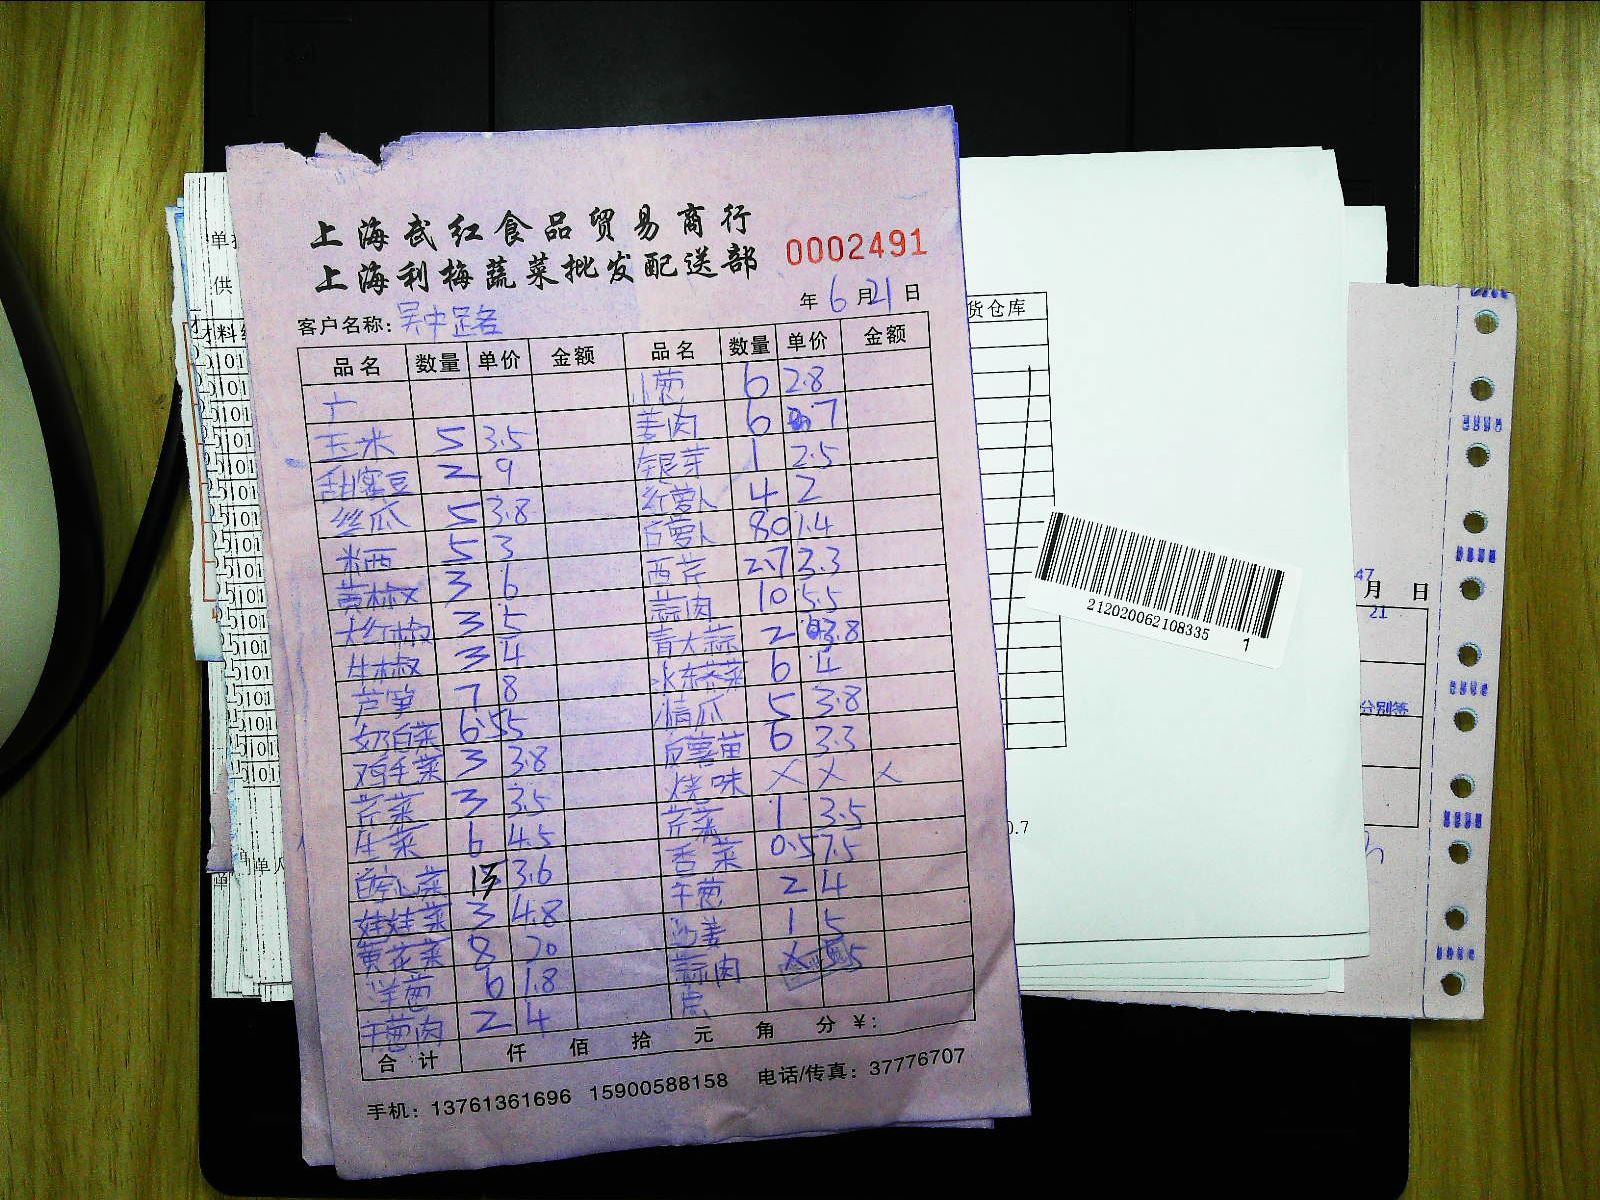 上海武红食品贸易商行
上海利梅蔬菜批发配送部
0002491
年 6 月 21 日
客户名称: 吴中路
品名 数量 单价 金额 品名 数量 单价 金额
小葱 6 2.8
玉米 5 3.5 姜肉 6 7
甜蜜豆 2 9 银芽 1 2.5
丝瓜 5 3.8 红萝卜 4 2
米西 5 3 白萝卜 80 1.4
黄椒 3 6 西芹 27 3.3
大红椒 3 5 蒜肉 10 5.5
牛椒 3 4 青大蒜 2 3.8
芦笋 7 8 水东芥菜 6 4
奶白菜 6 5.5 青瓜 5 3.8
鸡毛菜 3 3.8 6 3.3
芹菜 3 3.5 烧味 X X X
生菜 6 4.5 芹菜 1 3.5
白空心菜 15 3.6 香菜 0.5 7.5
娃娃菜 3 4.8 牛葱 2 4
黄花菜 8 20 沙姜 1 5
洋葱 6 1.8 蒜肉 X 5.5
干葱肉 2 4
合计 仟 佰 拾 元 角 分 ¥:
手机: 13761361696 15900588158 电话/传真: 37776707
货仓库
212020062108335 1
47
月 日
21
分别签
0.7
单
供
料